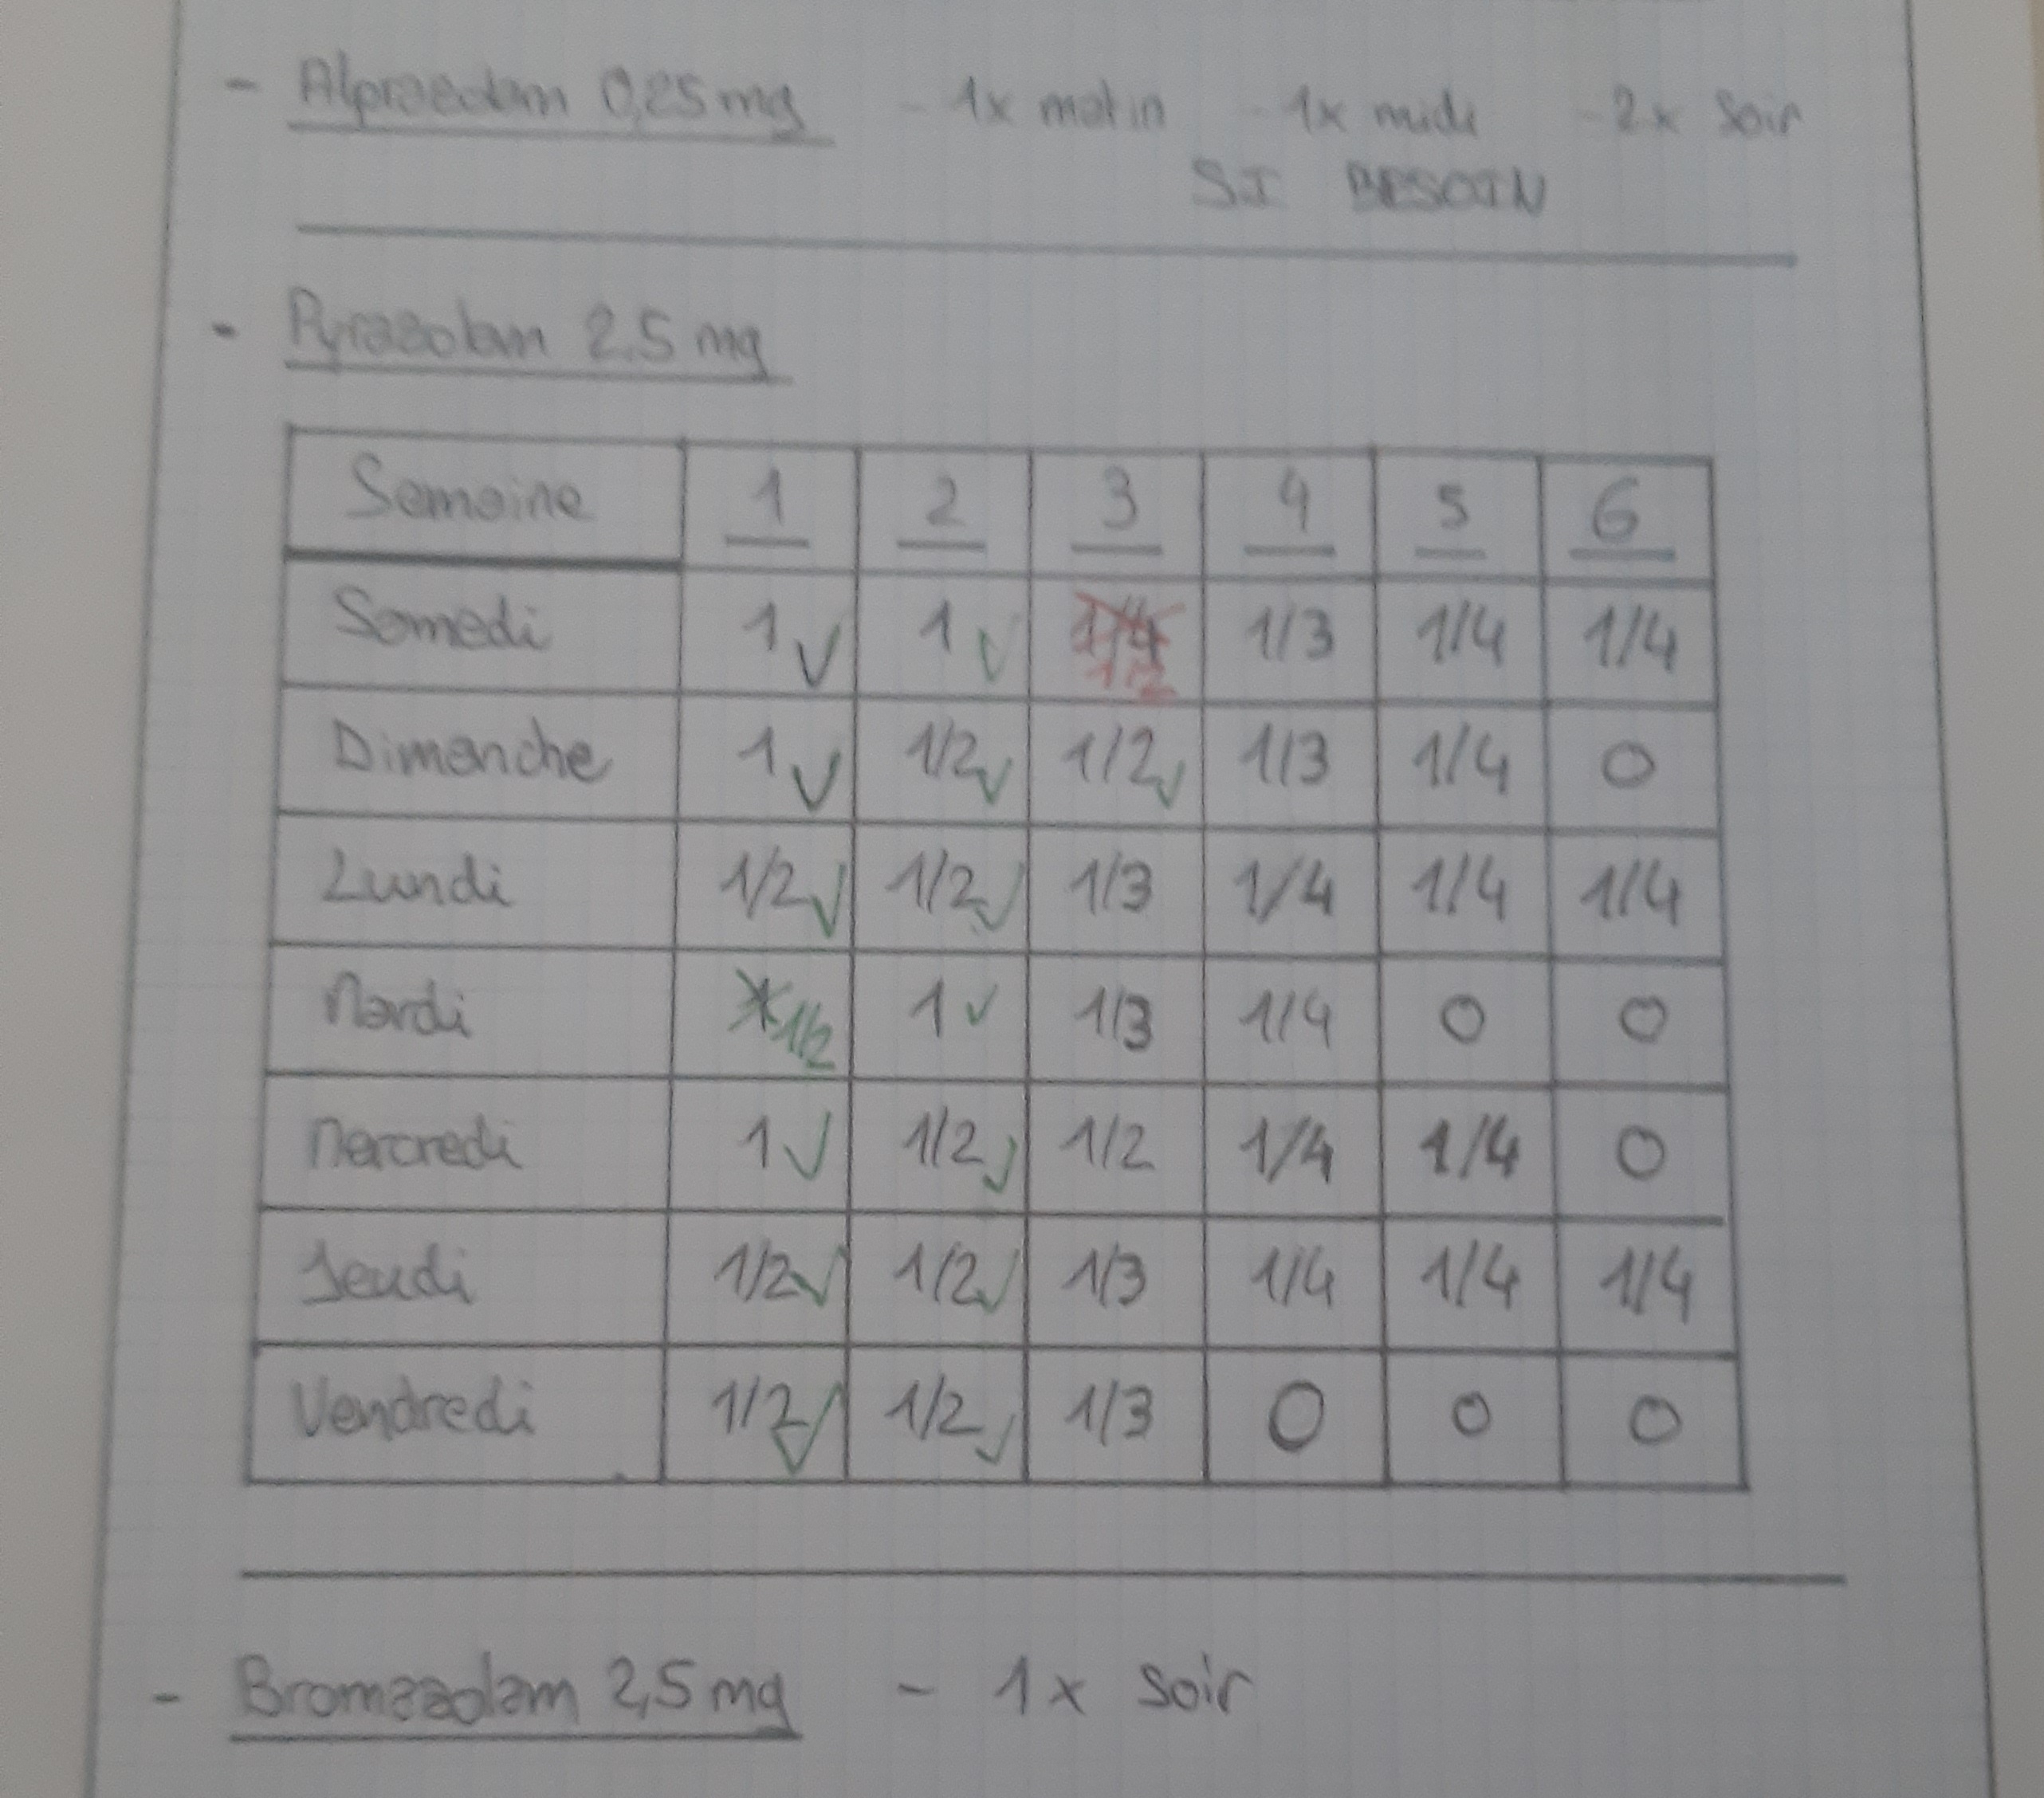 - Alprazolam 0,25mg - 1x matin - 1x midi - 2x Soir
SI BESOIN
- Pyrazolam 2,5 mg
Semaine 1 2 3 4 5 6
Samedi 1 √ 1 √ 1/4 1/2 1/3 1/4 1/4
Dimanche 1 √ 1/2 √ 1/2 √ 1/3 1/4 0
Lundi 1/2 √ 1/2 √ 1/3 1/4 1/4 1/4
Mardi 1/2 1 √ 1/3 1/4 0 0
Mercredi 1 √ 1/2 √ 1/2 1/4 1/4 0
Jeudi 1/2 √ 1/2 √ 1/3 1/4 1/4 1/4
Vendredi 1/2 √ 1/2 √ 1/3 0 0 0
- Bromazolam 2,5mg - 1x Soir